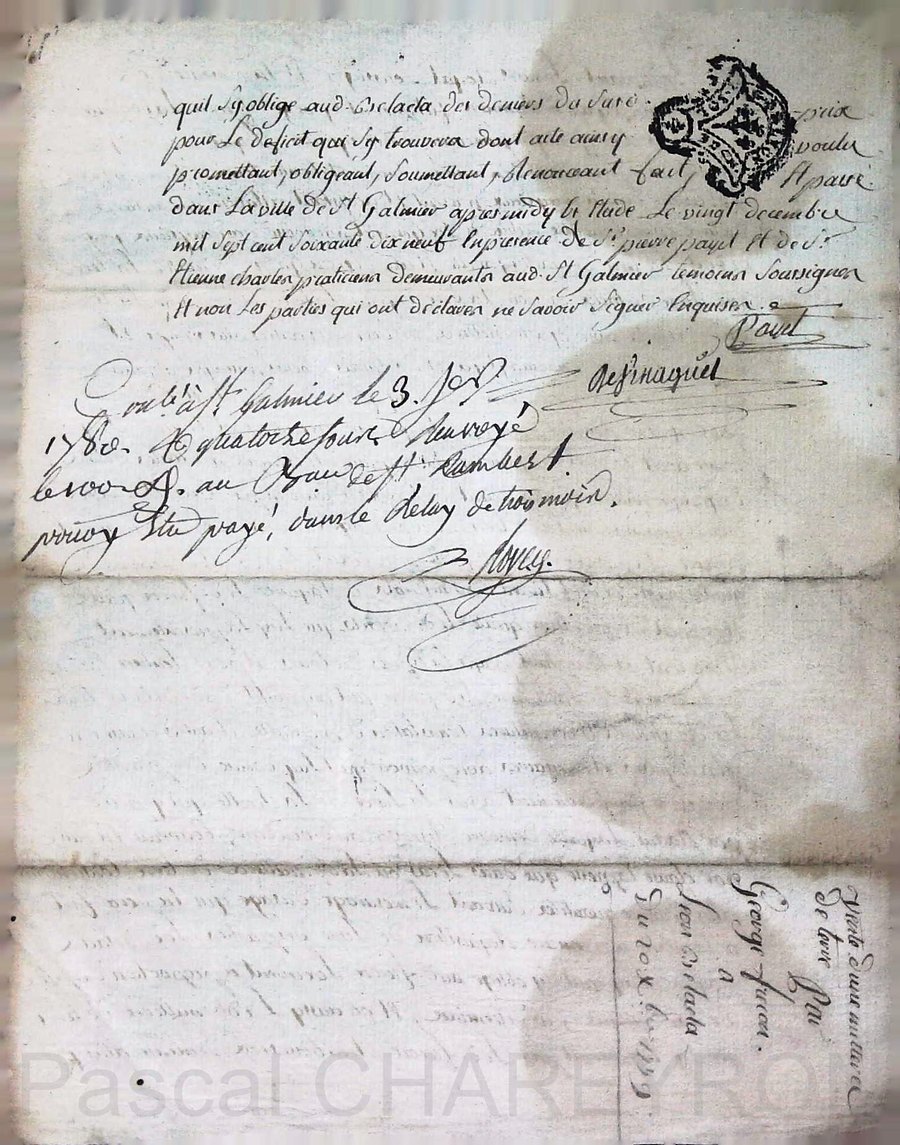 quil s'y oblige aud. Belacla des deniers du Susd. prix
pour Le deficit qui s'y trouvera dont acte ainsy voulu
promettant, obligeant, Soumettant, Renonceant fait, Et passé
dans La ville de St Galmier apres midy En Etude Le vingt decembre
mil sept cent soixante dix neuf En presence de Sr. pierre payet Et de Sr.
Etienne charles praticiens demeurants aud. St Galmier temoins Soussignes
Et non Les parties qui ont déclarés ne Savoir Signer Enquises.
Payet
à St Galmier le 3. Jer
1780. quatorze sous Renvoyé
le 100e d. au Bau de St Rambert
pour y Etre payé, dans le Delay de trois mois.
Vente d'une mitterée
de terre Par
George fucon.
a
Jean Belacla
Du 20 Xbre 1779
Pascal CHAREYRON